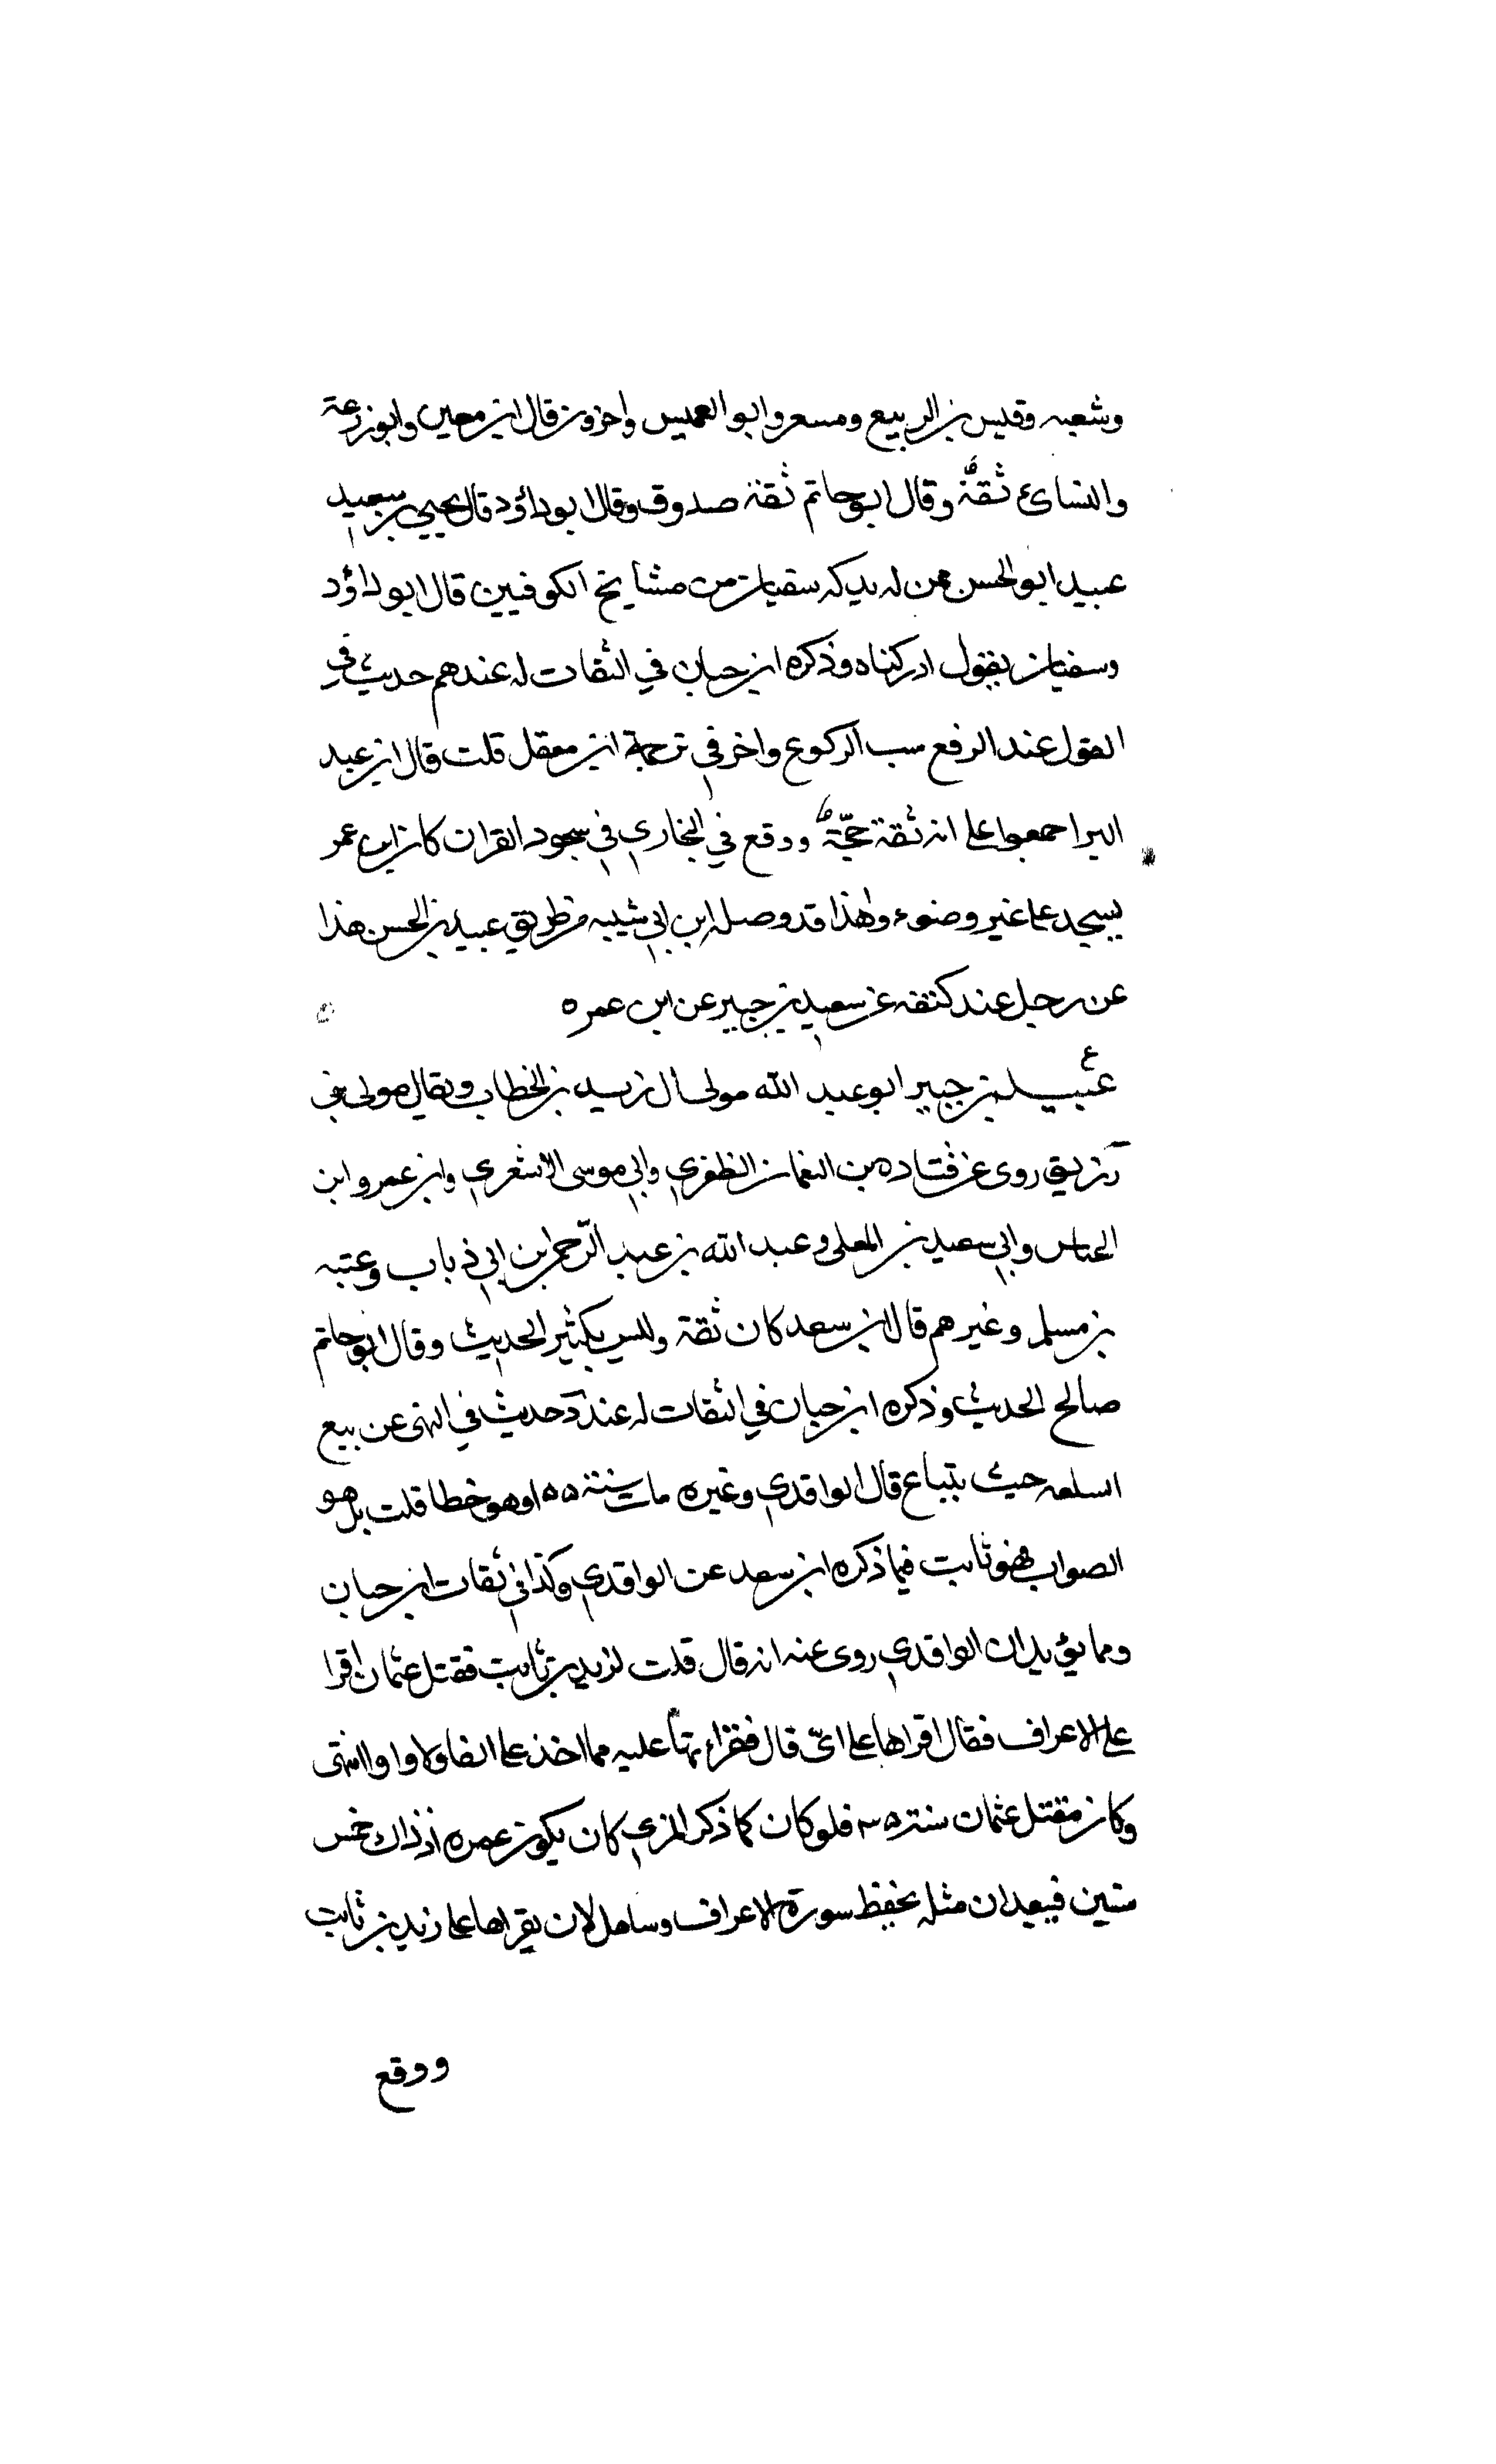 وشعبه وقيس بن الربيع ومسعر وابو العميس واخرون قال ابن معين وابو زرعة
والنسائ ثقة وقال ابو حاتم ثقة صدوق وقال ابو داؤد قال يحيى بن سعيد
عبيد ابو الحسن ممن له يدركه سفيان من مشايخ الكوفيين قال ابو داؤد
وسفيان يقول ادركناه وذكره ابن حبان في الثقات له عندهم حديث في
القول عند الرفع سب الركوع واخر في ترجمة ابن معقل قلت قال ابن عبد
البر اجمعوا على انه ثقة حجّة ووقع في البخاري في سجود القران كان ابن عمر
يسجد على غير وضوء وهذا قد وصله ابن ابي شيبه من طريق عبيد بن الحسن هذا
عن رجل عند كنفه عن سعيد بن جبير عن ابن عمر ه
ع
عبيد بن جبير ابو عبد الله مولى ال زيد بن الخطاب ويقال مولى بني
زريق روى عن قتاده بن النعمان الظفري وابي موسى الاشعري وابن عمر وابن
العباس وابي سعيد بن المعلى وعبد الله بن عبد الرحمن ابن ابي ذباب وعتبه
بن مسلم وغيرهم قال ابن سعد كان ثقة وليس بكثير الحديث وقال ابو حاتم
صالح الحديث وذكره ابن حبان في الثقات له عند د حديث في النهى عن بيع
السلعه حيث بتباع قال الواقدي وغيره مات سنة ١٥٥ وهو خطا قلت بل هو
الصواب فهو ثابت فيما ذكره ابن سعد عن الواقدي وكذا في ثقات ابن حبان
ومما يؤيد ان الواقدي روى عنه انه قال قلت لزيد بن ثابت فقتل عثمان اقرا
على الاعراف فقال اقراها على انّى قال فقراءتها عليه مما اخذ على الفا ولا واوا انتهى
وكان مقتل عثمان سنة ٣٥ فلو كان كما ذكر المزي كان يكون عمره اذ ذاك خمس
سنين فيبعد ان مثله يحفظ سورة الاعراف وساهل لان يقراها على زيد بن ثابت
ووقع